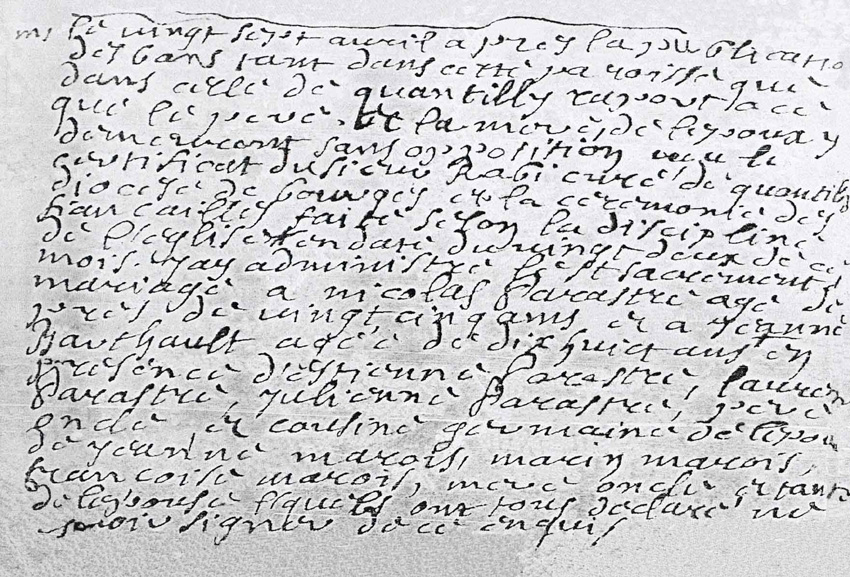 le vingt sept avril apres la publicatio
des bans tant dans cette paroisse que
dans celle de quantilly
que le pere et la mere de lepoux y
demeurent sans opposition veu le
certificat du sieur Rabi curé de quantilly
diocese de bourges et la ceremonie des
fiancailles faite selon la discipline
de l'eglise en date du vingt deux de ce
mois. j'ay administré le st sacrement
mariage a nicolas Parastre agé de
pres de vingt cinq ans et a jeanne
agée de dix huict ans en
presence d'estienne Parastre, lauren
Parastre, julienne Parastre, pere
oncle et cousine germaine de lepou
de jeanne marois, marin marois,
francoise marois, mere oncle et tante
de lepouse lequels ont tous declaré ne
scavoir signer de ce enquis